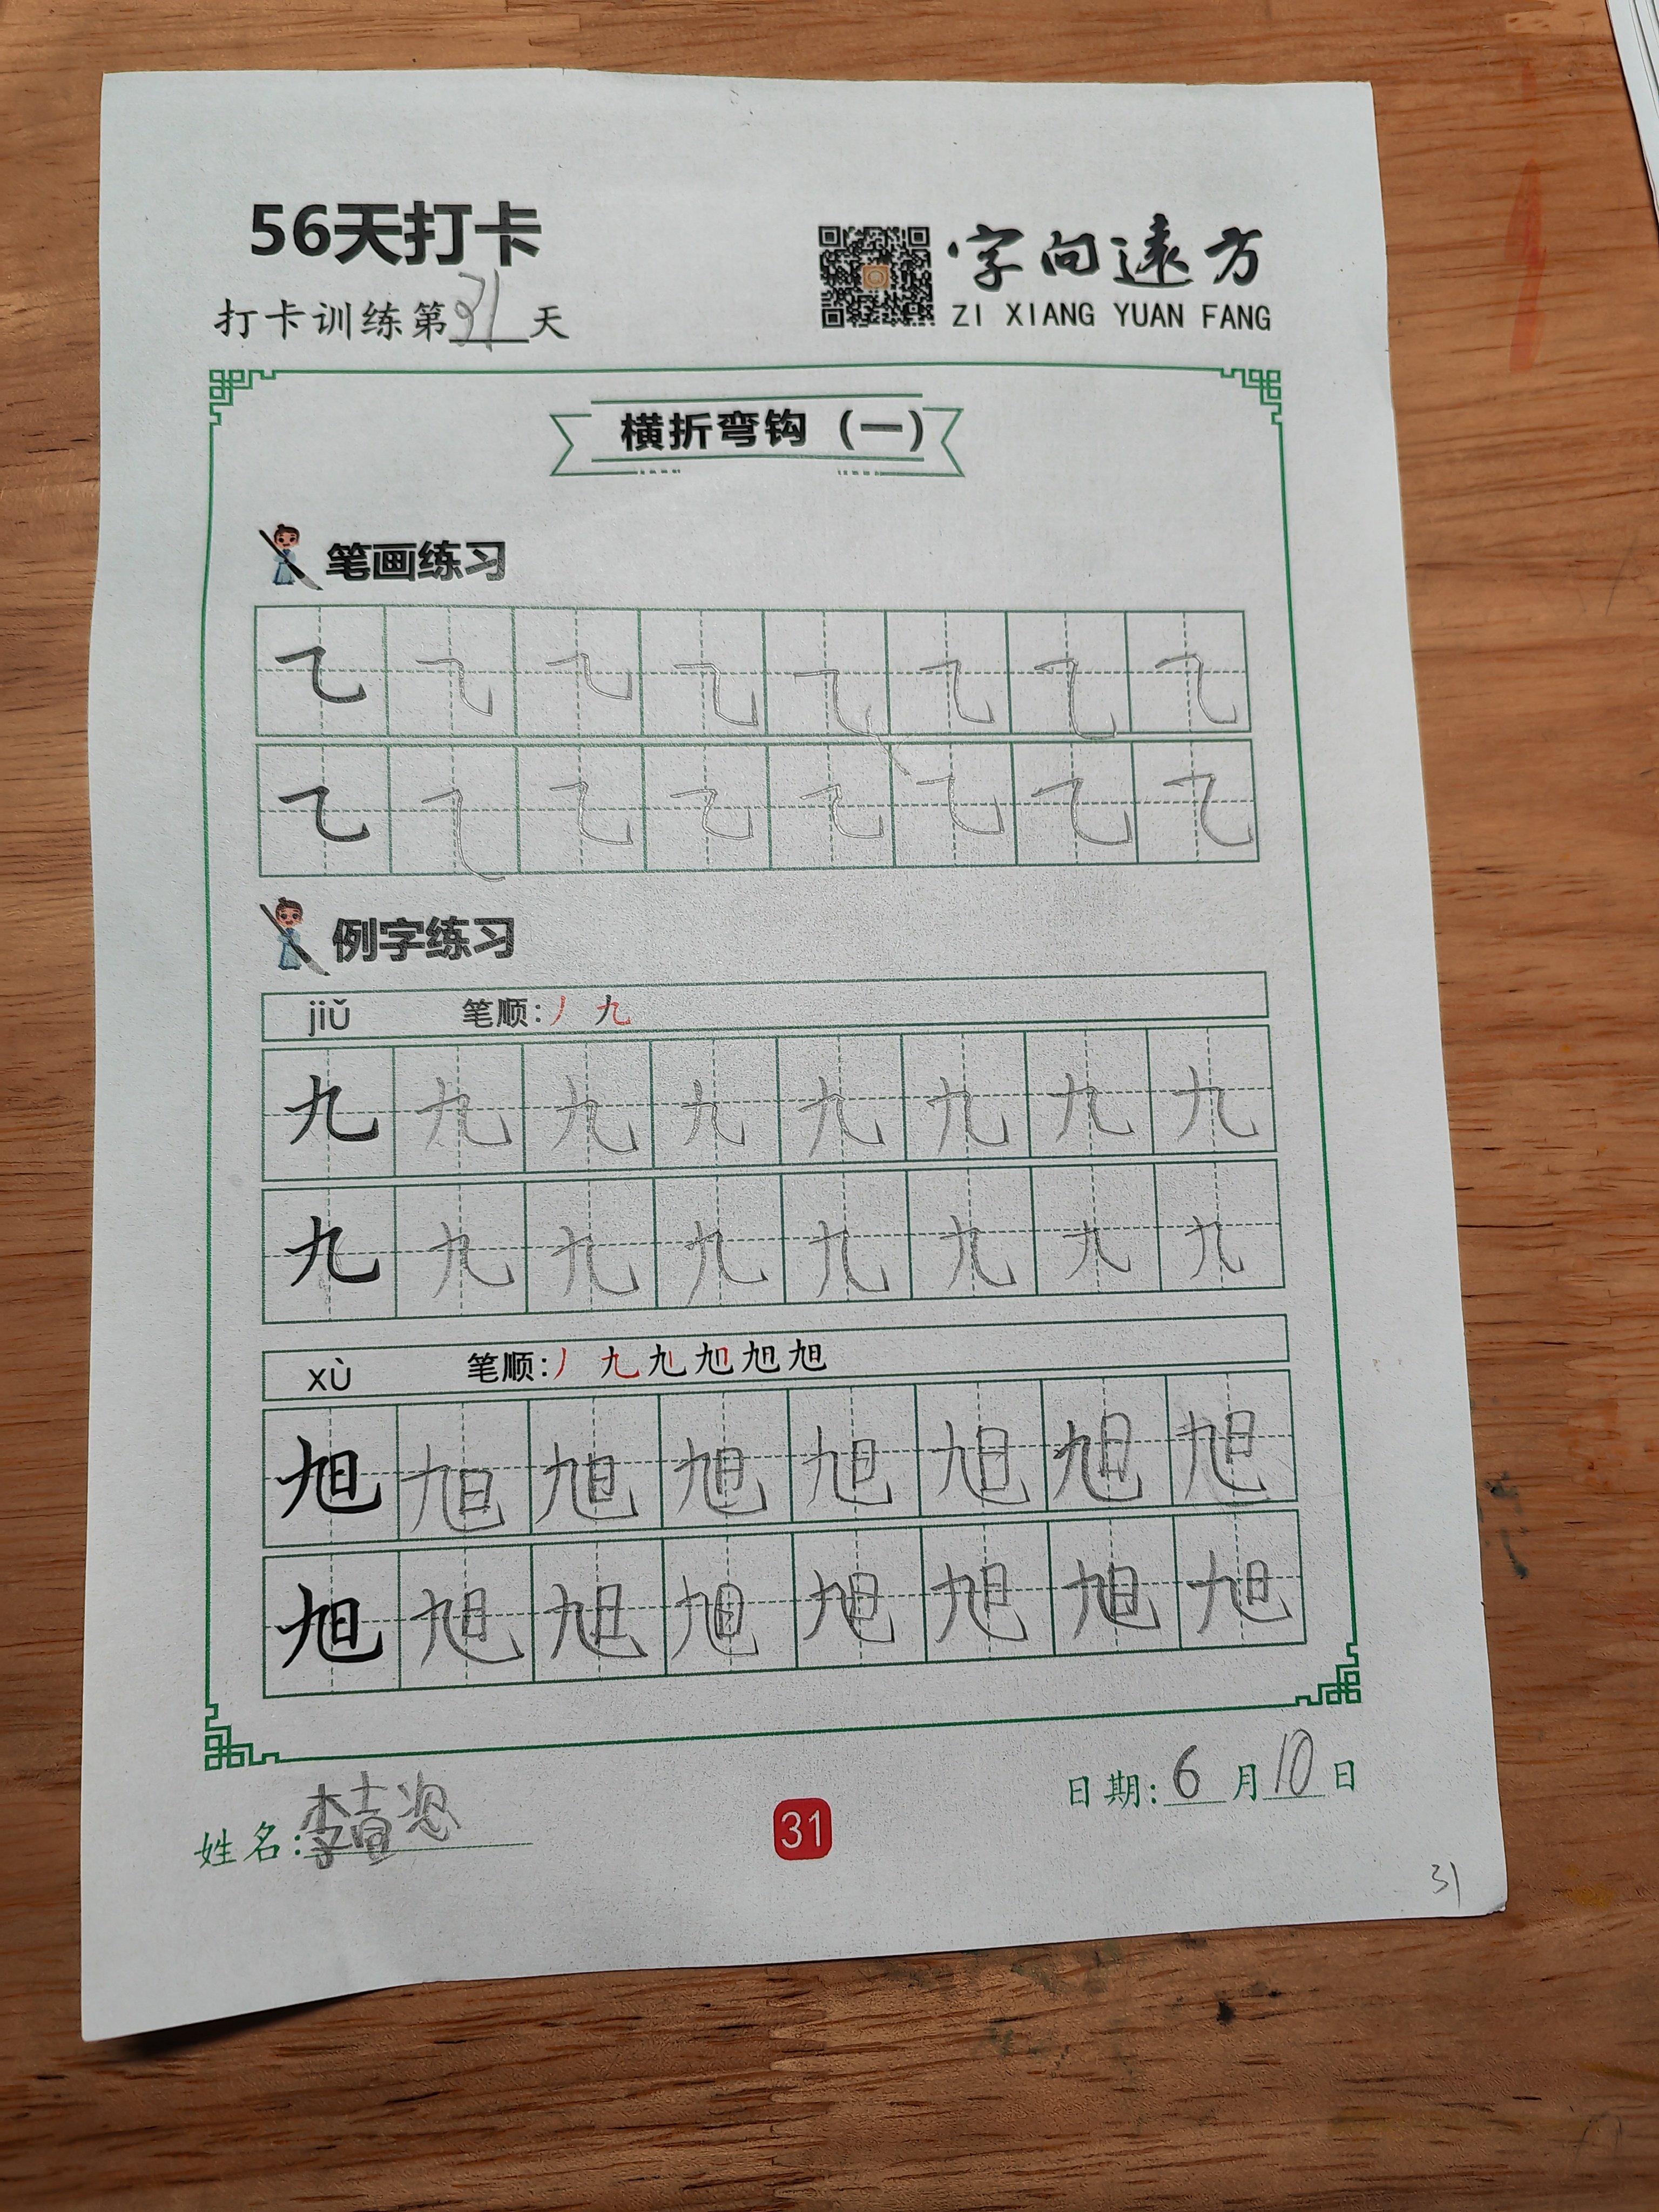 56天打卡
字向远方
打卡训练第31天
ZI XIANG YUAN FANG
横折弯钩（一）
笔画练习
例字练习
jiǔ 笔顺:丿 九
九 九 九 九 九 九 九 九
九 九 九 九 九 九 九 九
xù 笔顺:丿 九 旭 旭
旭 旭 旭 旭 旭 旭 旭 旭
旭 旭 旭 旭 旭 旭 旭 旭
日期:6月10日
姓名:李
31
31